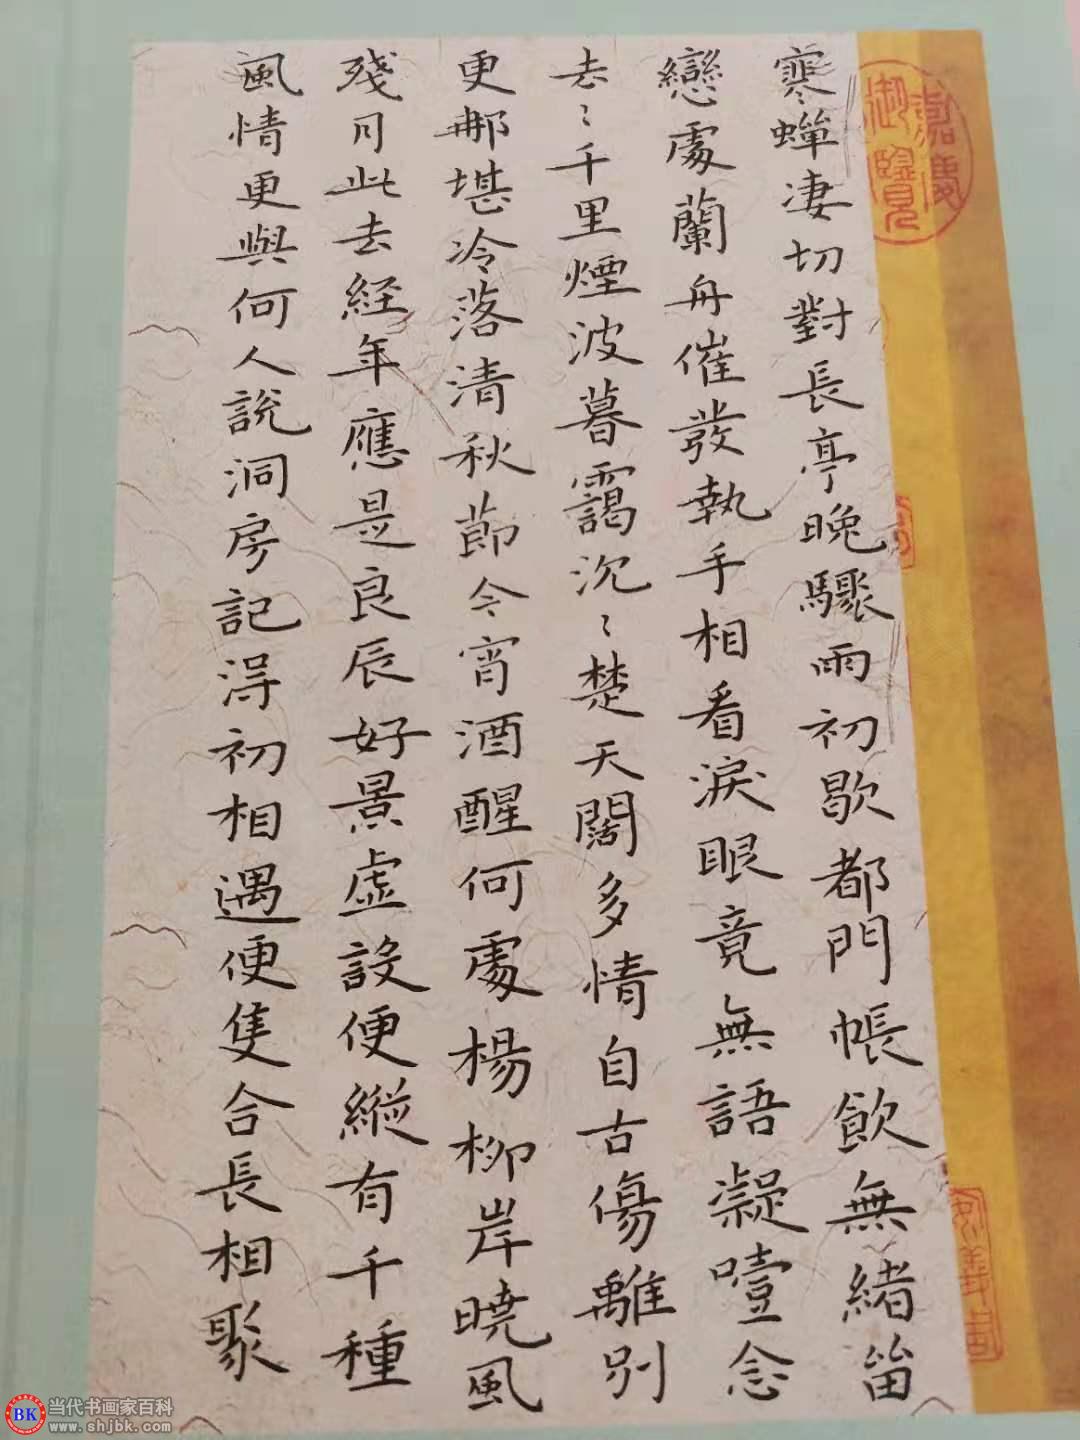 寒蟬凄切對長亭晚驟雨初歇都門帳飲無緒留
戀處蘭舟催發執手相看淚眼竟無語凝噎念
去〻千里煙波暮靄沉〻楚天闊多情自古傷離別
更那堪冷落清秋節今宵酒醒何處楊柳岸曉風
殘月此去經年應是良辰好景虛設便縱有千種
風情更與何人說洞房記得初相遇便隻合長相聚
嘉慶
御覽
BK
当代书画家百科
www.shjbk.com